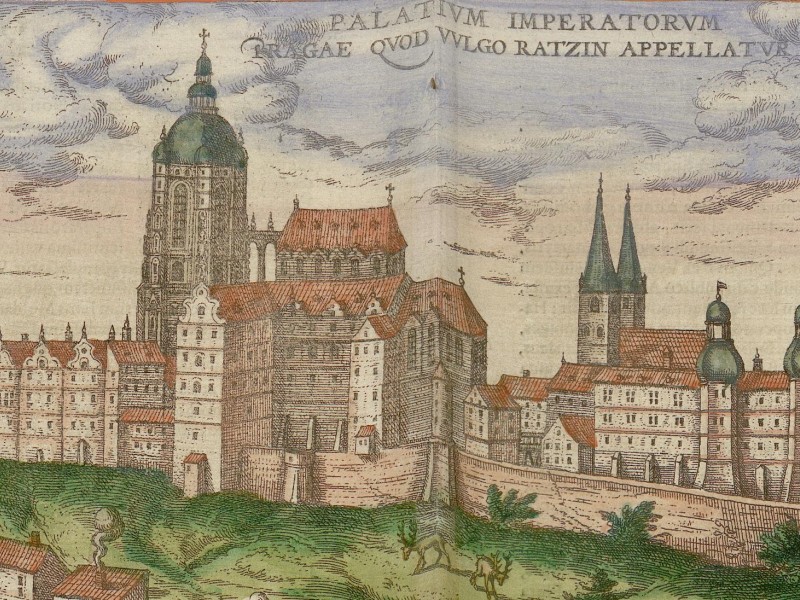 PALATIVM IMPERATORVM
PRAGAE QVOD VVLGO RATZIN APPELLATVR